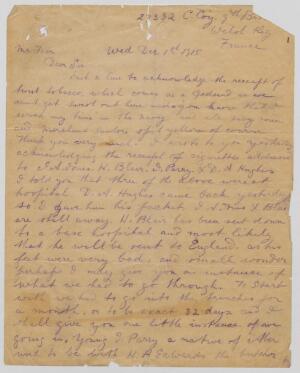 21332 C. Coy. 9th Bn
Welsh Reg
France
Wed Dec 1st 1915
Dear Sir
Just a line to acknowledge the receipt of
tobacco which comes as a Godsend as we
can't get out here and you know that I
my time in the army and
of yellow of course
Thank you very much. I wrote to you yesterday
acknowledging the receipt of cigarettes addressed
to H. Bleir. I. Parry, & D. A Hughes
I told you that three of the above were in
hospital. D. A. Hughes came back yesterday
so I gave him his packet. & Bleir
are still away. H. Bleir has been sent down
to a base hospital and most likely
that he will be sent to England, as his
feet were very bad, and small wonder
perhaps I may give you an instance of
what we had to go through. To start
with we had to go into the trenches for
a month, or to be exact 32 days and I
shall give you one little instance of our
going in. Young I Parry a native of
used to be with H. R Edwards the butcher